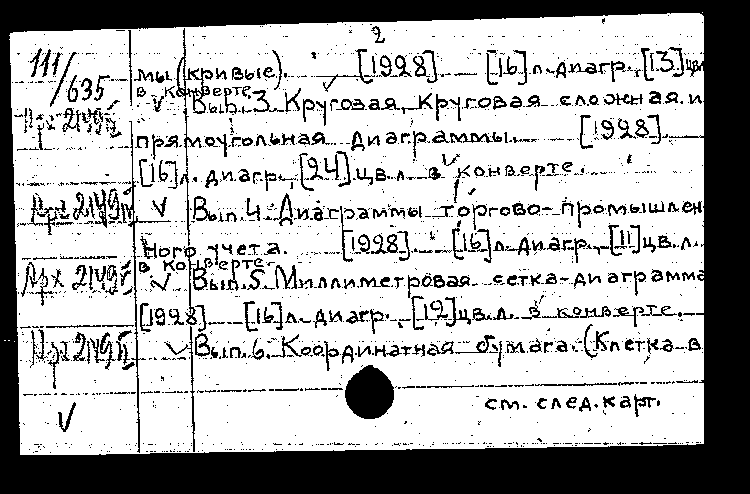 2
111/635
мы (кривые). [1928] [16] л. диагр., [13] цв
в конверте
Вып. 3. Круговая, круговая сложная и
Арх 2149
прямоугольная диаграммы. [1928].
[16] л. диагр., [24] цв. л. в конверте.
Арх 2149 Вып. 4. Диаграммы торгово-промышлен
ного учета. [1928]. [16] л. диагр., [11] цв. л.
в конверте.
Арх 2149 Вып. 5. Миллиметровая сетка-диаграмма
[1928] [16] л. диагр., [12] цв. л. в конверте.
Арх 2149 Вып. 6. Координатная бумага. (Клетка в
см. след. карт.